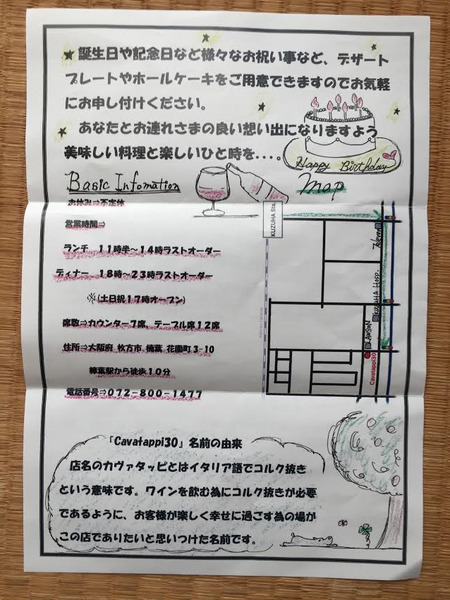 誕生日や記念日など様々なお祝い事など、デザート
プレートやホールケーキをご用意できますのでお気軽
にお申し付けください。
あなたとお連れさまの良い想い出になりますよう
美味しい料理と楽しいひと時を...。
Happy Birthday
Basic Infomation
map
お休み⇒不定休
営業時間⇒
ランチ 11時半~14時ラストオーダー
ディナー 18時~23時ラストオーダー
※(土日祝17時オープン)
席数⇒カウンター7席、テーブル席12席
住所⇒大阪府 枚方市 楠葉 花園町3-10
樟葉駅から徒歩10分
電話番号⇒072-800-1477
KUZUHA Sta.
KUZUHA Hosp.
Cavatappi30
「Cavatappi30」名前の由来
店名のカヴァタッピとはイタリア語でコルク抜き
という意味です。ワインを飲む為にコルク抜きが必要
であるように、お客様が楽しく幸せに過ごす為の場が
この店でありたいと思いつけた名前です。